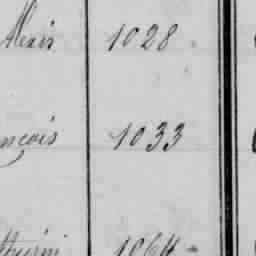 Alexis 1028
nçois 1033
thurin 1064